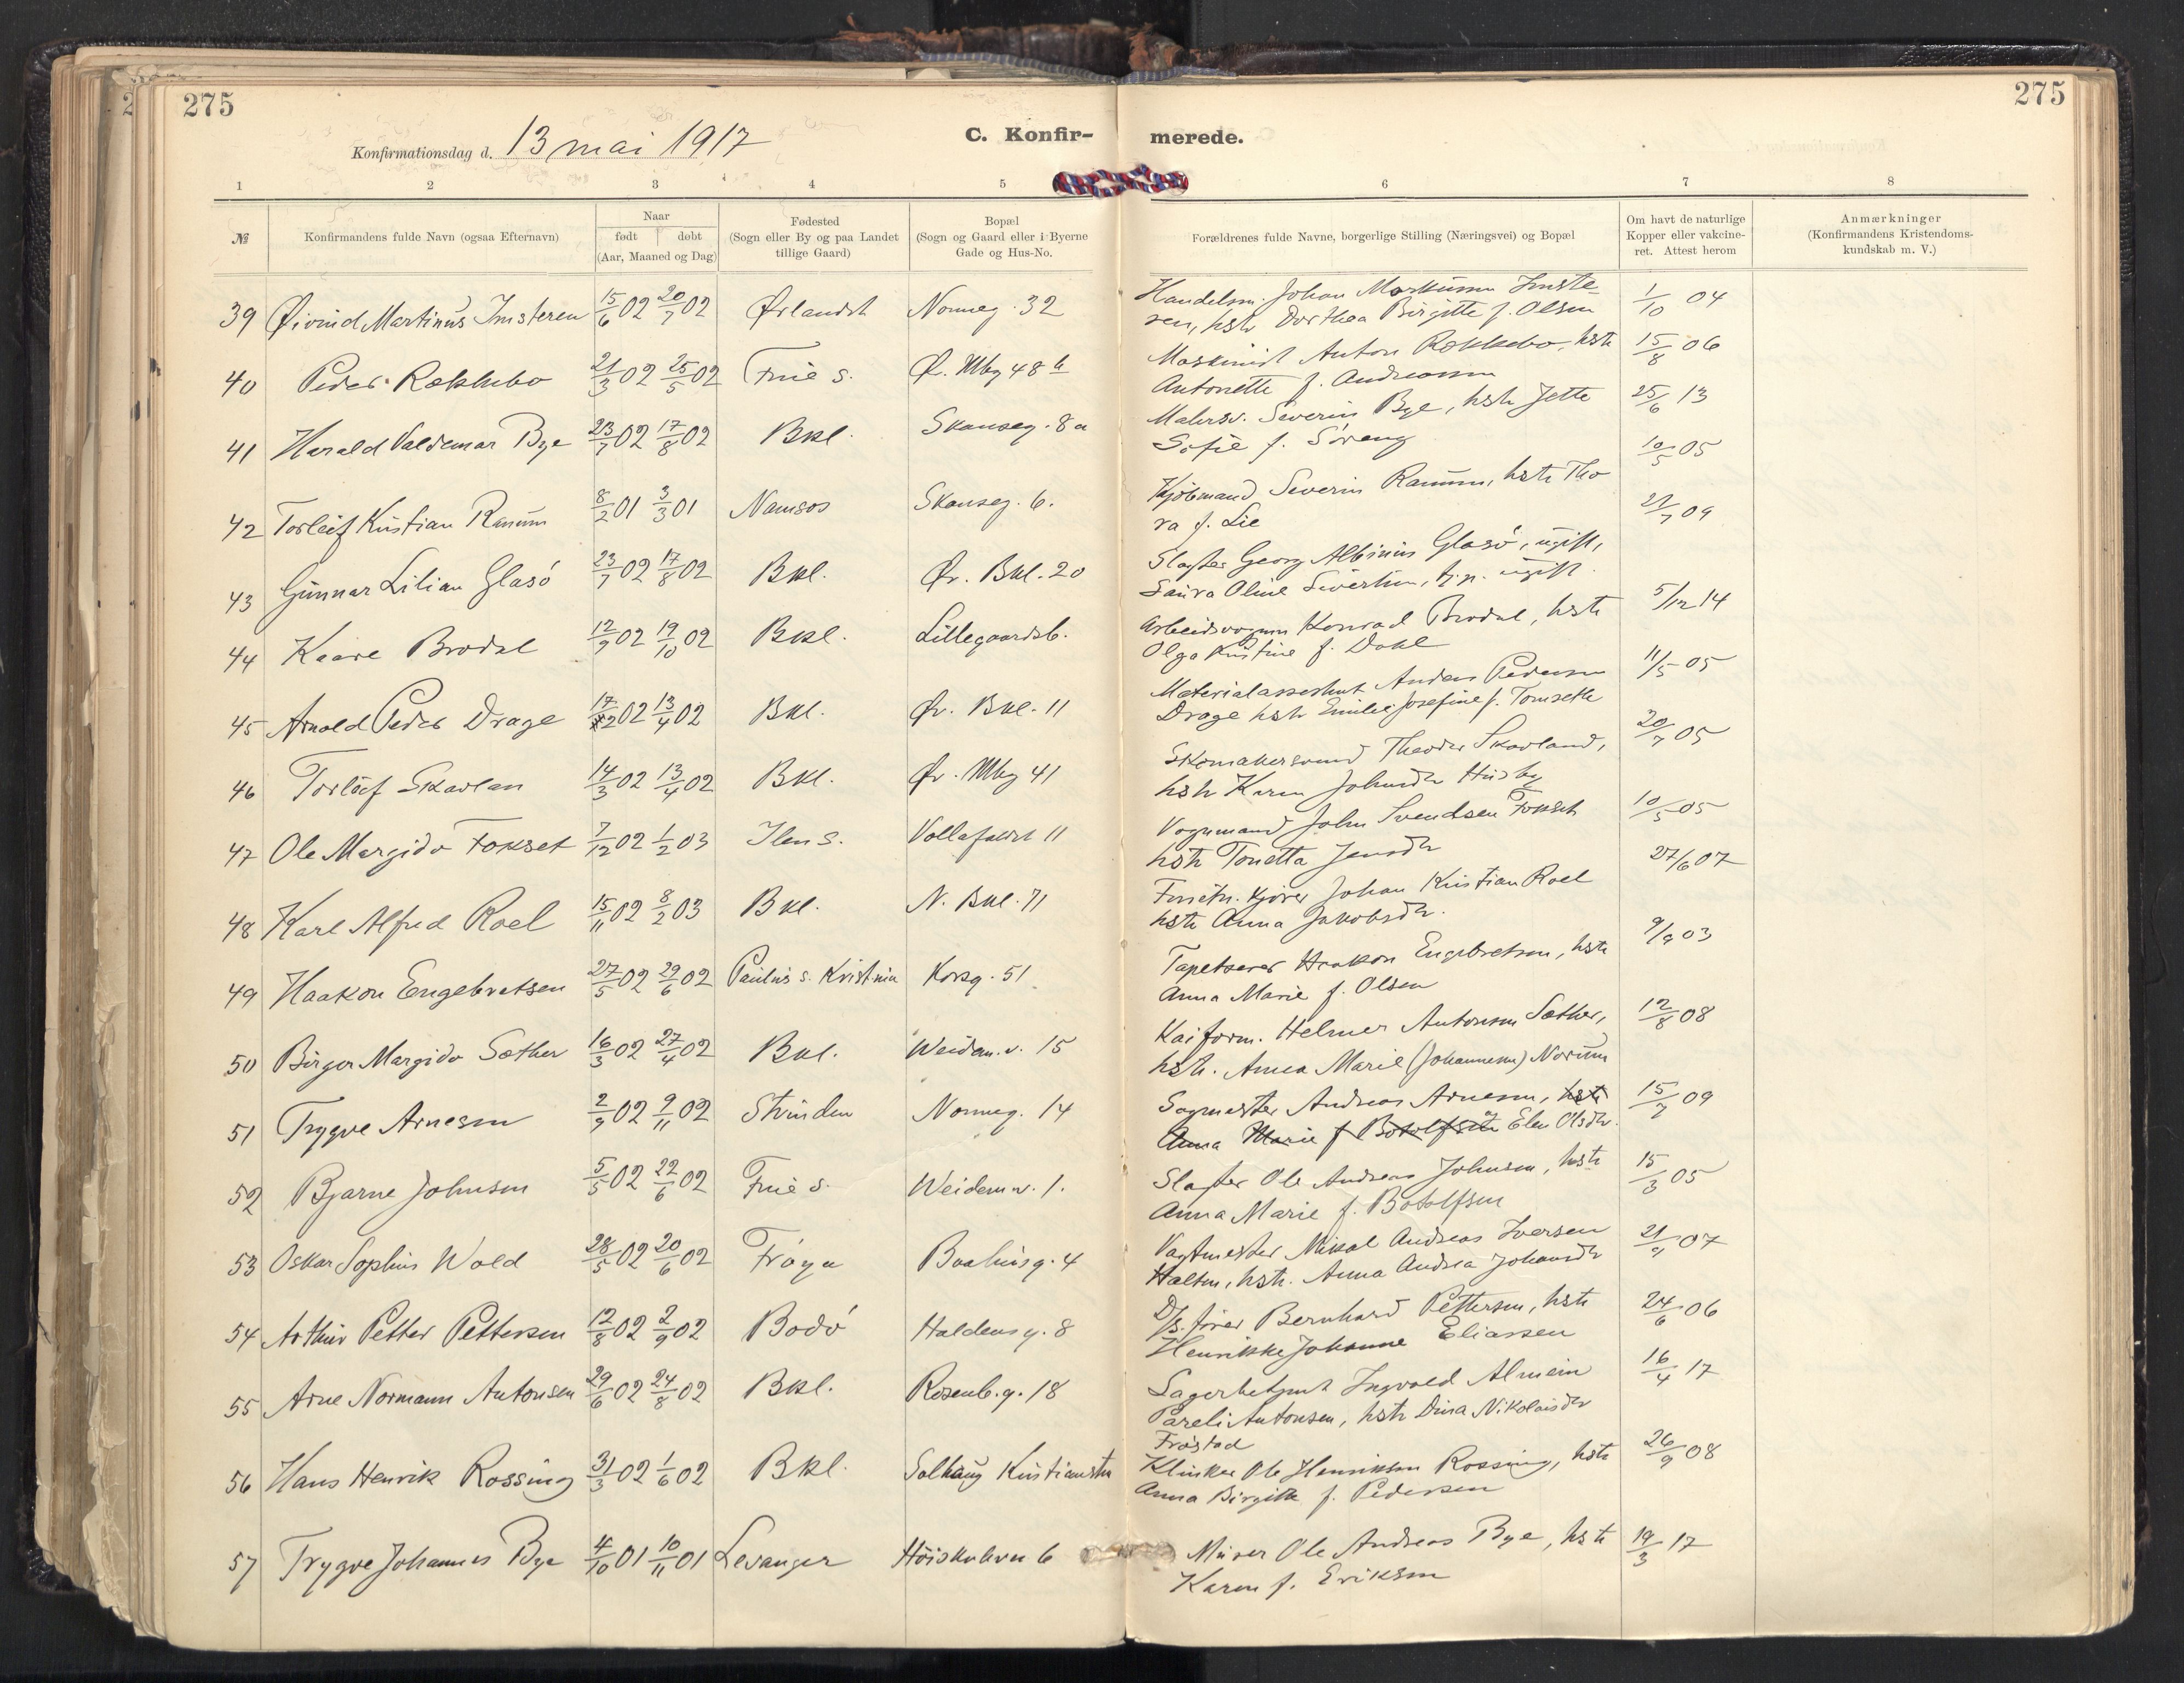 275
275
Konfirmationsdag d. 13 mai 1917
C. Konfir-
merede.
1 2 3 4 5 6 7 8
№
Konfirmandens fulde Navn (ogsaa Efternavn)
Naar
født døbt
(Aar, Maaned og Dag)
Fødested
(Sogn eller By og paa Landet
tillige Gaard)
Bopæl
(Sogn og Gaard eller i Byerne
Gade og Hus-No.
Forældrenes fulde Navne, borgerlige Stilling (Næringsvei) og Bopæl
Om havt de naturlige
Kopper eller vakcine-
ret. Attest herom
Anmærkninger
(Konfirmandens Kristendoms-
kundskab m. V.)
39 Øivind Martinus Imsteren 15/6 02 20/7 02 Ørlandet Nonneg. 32
Handelsm. Johan Markusen Imste-
ren, hstr Dorthea Birgitte f. Olsen
1/10 04
40 Peder Rækkebo 21/3 02 25/5 02 Frue s. Ø. Mbg 48 b
Maskinist Anton Rækkebo, hstr
Antonette f. Andreassen
15/8 06
41 Harald Valdemar Bye 23/7 02 17/8 02 Bkl. Skanseg. 8 a
Malersv. Severin Bye, hstr Jette
Sofie f. Söreng
25/6 13
42 Torleif Kristian Ranum 8/2 01 3/3 01 Namsos Skanseg. 6.
Kjöbmand Severin Ranum, hstr Tho-
ra f. Lie
10/5 05
43 Gunnar Lilian Glasö 23/7 02 17/8 02 Bkl. Øv. Bkl. 20
Slagter Georg Albinius Glasö, ugift,
Laura Oline Sivertsen, tj.p. ugift.
21/7 09
44 Kaare Brodal 12/9 02 19/10 02 Bkl. Lillegaardsb.
Arbeidsvognm Konrad Brodal, hstr
Olga Kristine f. Dahl
5/12 14
45 Arnold Peder Drage 17/2 02 13/4 02 Bkl. Øv. Bkl. 11
Materialassistent Anders Pedersen
Drage hstr Emilie Josefine f. Tomseth
11/5 05
46 Torleif Skavlan 14/3 02 13/4 02 Bkl. Øv. Mbg 41
Skomakersvend Theodor Skavland,
hstr Karen Johnsdtr Husby
20/7 05
47 Ole Margido Fokset 7/12 02 1/2 03 Ilen s. Vollafaldet 11
Vognmand John Svendsen Fokset
hstr Tonetta Jensdtr
10/5 05
48 Karl Alfred Roel 15/11 02 8/2 03 Bkl. N. Bkl. 71
kjörer Johan Kristian Roel
hstr Anna Jakobsdtr.
27/6 07
49 Haakon Engebretsen 27/5 02 29/6 02 Paulus s. Kristania Korsg. 51
Tapetserer Haakon Engebretsen, hstr
Anna Marie f. Olsen
9/9 03
50 Birger Margido Sæther 16/3 02 27/4 02 Bkl. Weidem.v. 15
Kaiform. Helmer Antonsen Sæther,
hstr. Anna Marie (Johannesen) Norum
12/8 08
51 Trygve Arnesen 2/9 02 9/11 02 Strinden Nonneg. 14
Sagmester Andreas Arnesen, hstr
Anna Marie f Botolfsen Elen Olsdtr.
15/7 09
52 Bjarne Johnsen 5/5 02 22/6 02 Frue s. Weidem.v. 1.
Slagter Ole Andreas Johnsen, hstr
Anna Marie f. Botolfsen
15/3 05
53 Oskar Sophus Wold 28/5 02 20/6 02 Fröya Baahusg. 4
Vagtmester Mikal Andreas Iversen
Halten, hstr. Anna Andrea Johansdtr
21/9 07
54 Arthur Petter Pettersen 12/8 02 2/9 02 Bodö Haldensg. 8
D/S. förer Bernhard Pettersen, hstr
Henrikke Johanne Eliassen
24/6 06
55 Arne Normann Antonsen 29/6 02 24/8 02 Bkl. Rosenb.g. 18
Lagerbetjent Ingvald Almein
Pareli Antonsen, hstr Dina Nikolaisdtr
Fröstad
16/4 17
56 Hans Henrik Rossing 31/3 02 1/6 02 Bkl. Solhaug Kristiansten
Klinker Ole Henriksen Rossing, hstr
Anna Birgitte f. Pedersen
26/9 08
57 Trygve Johannes Bye 4/10 01 10/11 01 Levanger Höiskolevn 6
Murer Ole Andreas Bye, hstr
Karen f. Eriksen
19/3 17